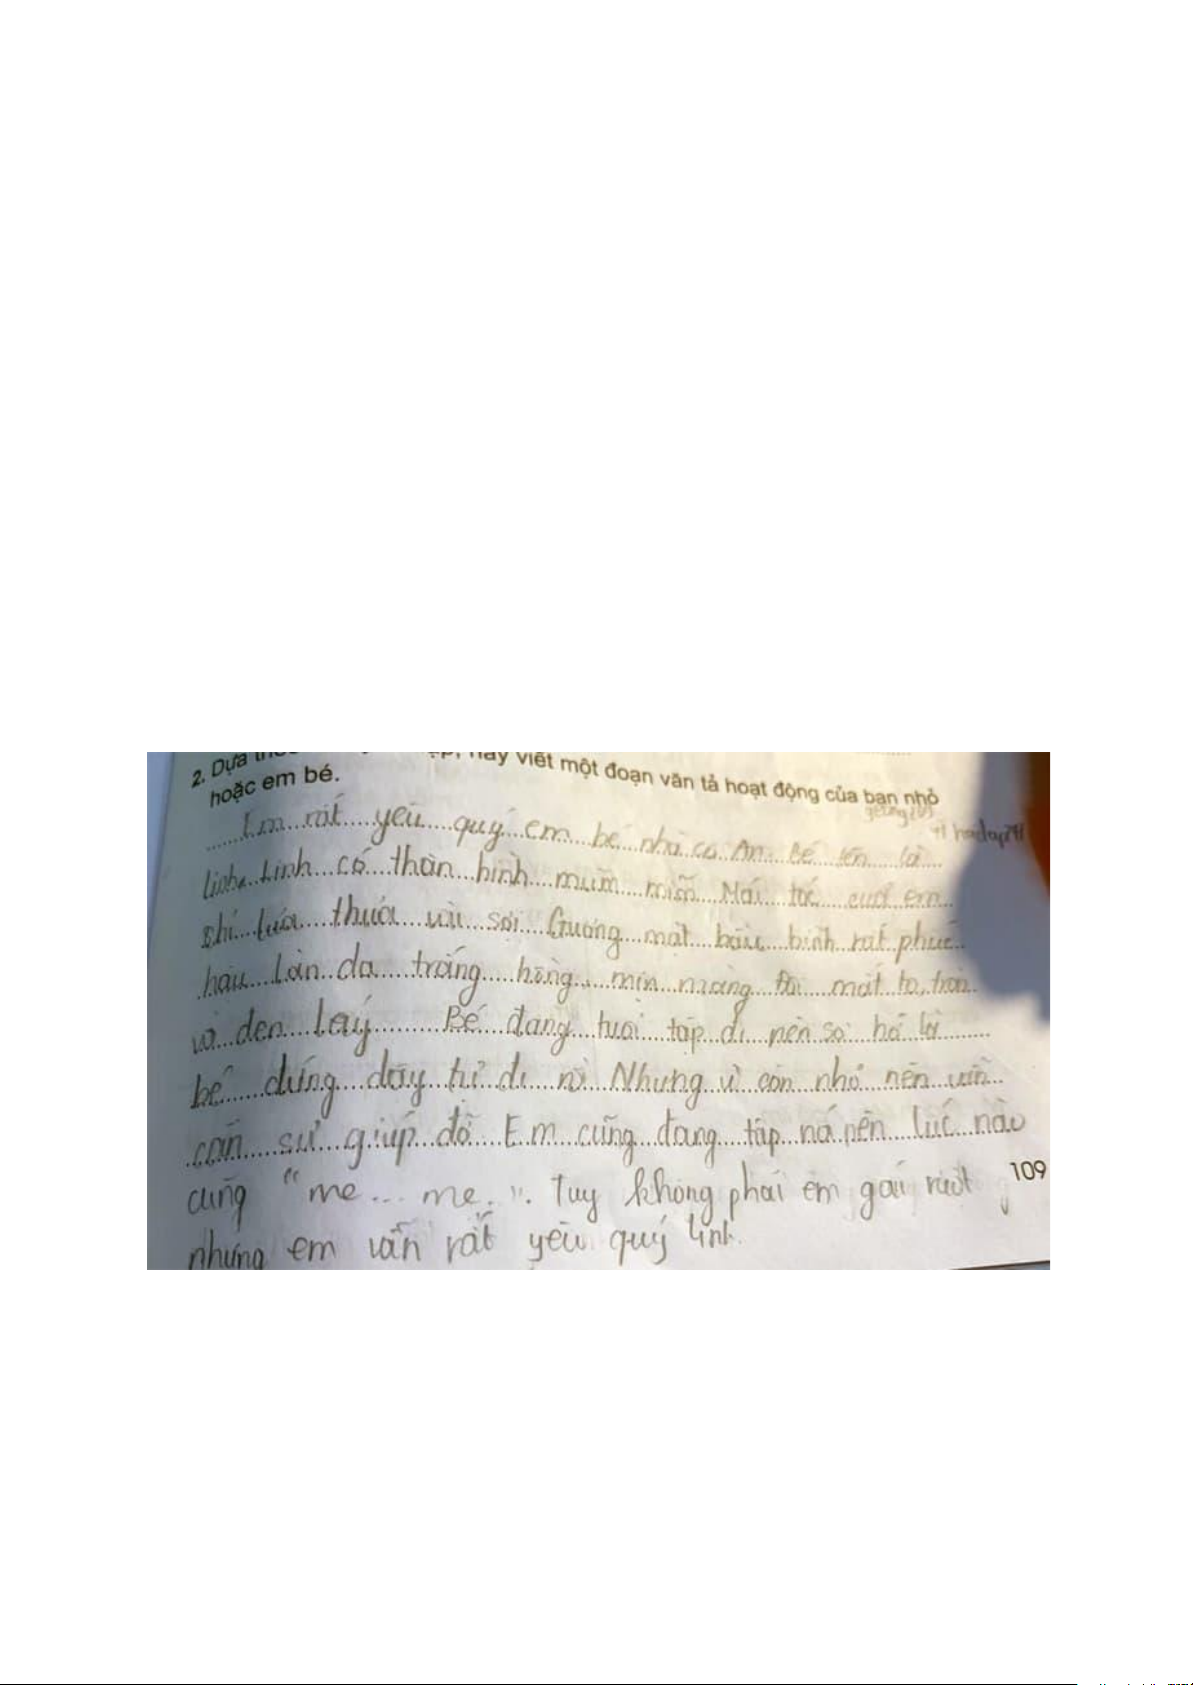 2. Dựa hãy viết một đoạn văn tả hoạt động của bạn nhỏ
hoặc em bé.
Em rất yêu quý em bé nhà cô An. Bé tên là
linh. Linh có thân hình mũm mĩm Mái tóc em
chỉ lưa thưa vài sợi Gương mặt bầu bĩnh rất phúc
hậu Làn da trắng hồng, mịn màng Đôi mắt to, tròn
và đen láy Bé đang tuổi tập đi nên sơ hở là
bé đứng dậy tự đi rồi Nhưng vì còn nhỏ nên vẫn
cần sự giúp đỡ Em cũng đang tập nói nên lúc nào
cũng "me... me..". Tuy không phải em gái ruột
109
nhưng em vẫn rất yêu quý Linh.